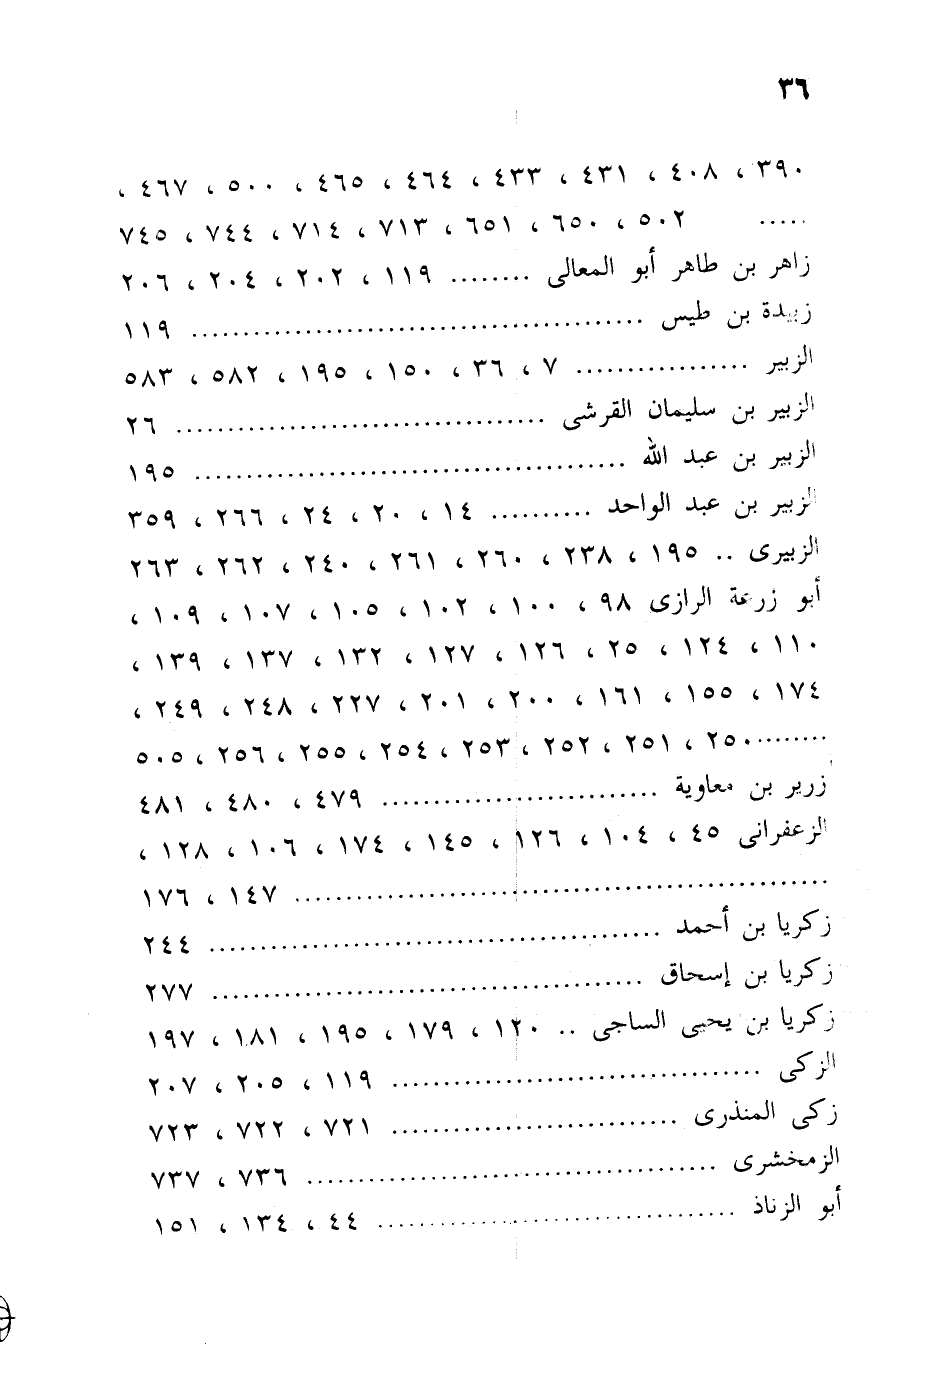 ٣٦
٣٩٠ ، ٤٠٨ ، ٤٣١ ، ٤٣٣ ، ٤٦٤ ، ٤٦٥ ، ٥٠٠ ، ٤٦٧ ،
..... ٥٠٢ ، ٦٥٠ ، ٦٥١ ، ٧١٣ ، ٧١٤ ، ٧٤٤ ، ٧٤٥
زاهر بن طاهر أبو المعالى ........ ١١٩ ، ٢٠٢ ، ٢٠٤ ، ٢٠٦
زبيدة بن طيس ............................................ ١١٩
الزبير ................. ٧ ، ٣٦ ، ١٥٠ ، ١٩٥ ، ٥٨٢ ، ٥٨٣
الزبير بن سليمان القرشى .................................... ٢٦
الزبير بن عبد الله .......................................... ١٩٥
الزبير بن عبد الواحد .......... ١٤ ، ٢٠ ، ٢٤ ، ٢٦٦ ، ٣٥٩
الزبيرى .. ١٩٥ ، ٢٣٨ ، ٢٦٠ ، ٢٦١ ، ٢٤٠ ، ٢٦٢ ، ٢٦٣
أبو زرعة الرازى ٩٨ ، ١٠٠ ، ١٠٢ ، ١٠٥ ، ١٠٧ ، ١٠٩ ،
١١٠ ، ١٢٤ ، ٢٥ ، ١٢٦ ، ١٢٧ ، ١٣٢ ، ١٣٧ ، ١٣٩ ،
١٧٤ ، ١٥٥ ، ١٦١ ، ٢٠٠ ، ٢٠١ ، ٢٢٧ ، ٢٤٨ ، ٢٤٩ ،
........٢٥٠ ، ٢٥١ ، ٢٥٢ ، ٢٥٣ ، ٢٥٤ ، ٢٥٥ ، ٢٥٦ ، ٥٠٥
زرير بن معاوية ........................... ٤٧٩ ، ٤٨٠ ، ٤٨١
الزعفرانى ٤٥ ، ١٠٤ ، ١٢٦ ، ١٤٥ ، ١٧٤ ، ١٠٦ ، ١٢٨ ،
.................................................... ١٤٧ ، ١٧٦
زكريا بن أحمد ............................................ ٢٤٤
زكريا بن إسحاق .......................................... ٢٧٧
زكريا بن يحيى الساجى .. ١٢٠ ، ١٧٩ ، ١٩٥ ، ١٨١ ، ١٩٧
الزكى .................................... ١١٩ ، ٢٠٥ ، ٢٠٧
زكى المنذرى ............................ ٧٢١ ، ٧٢٢ ، ٧٢٣
الزمخشرى ........................................ ٧٣٦ ، ٧٣٧
أبو الزناذ ................................... ٤٤ ، ١٣٤ ، ١٥١